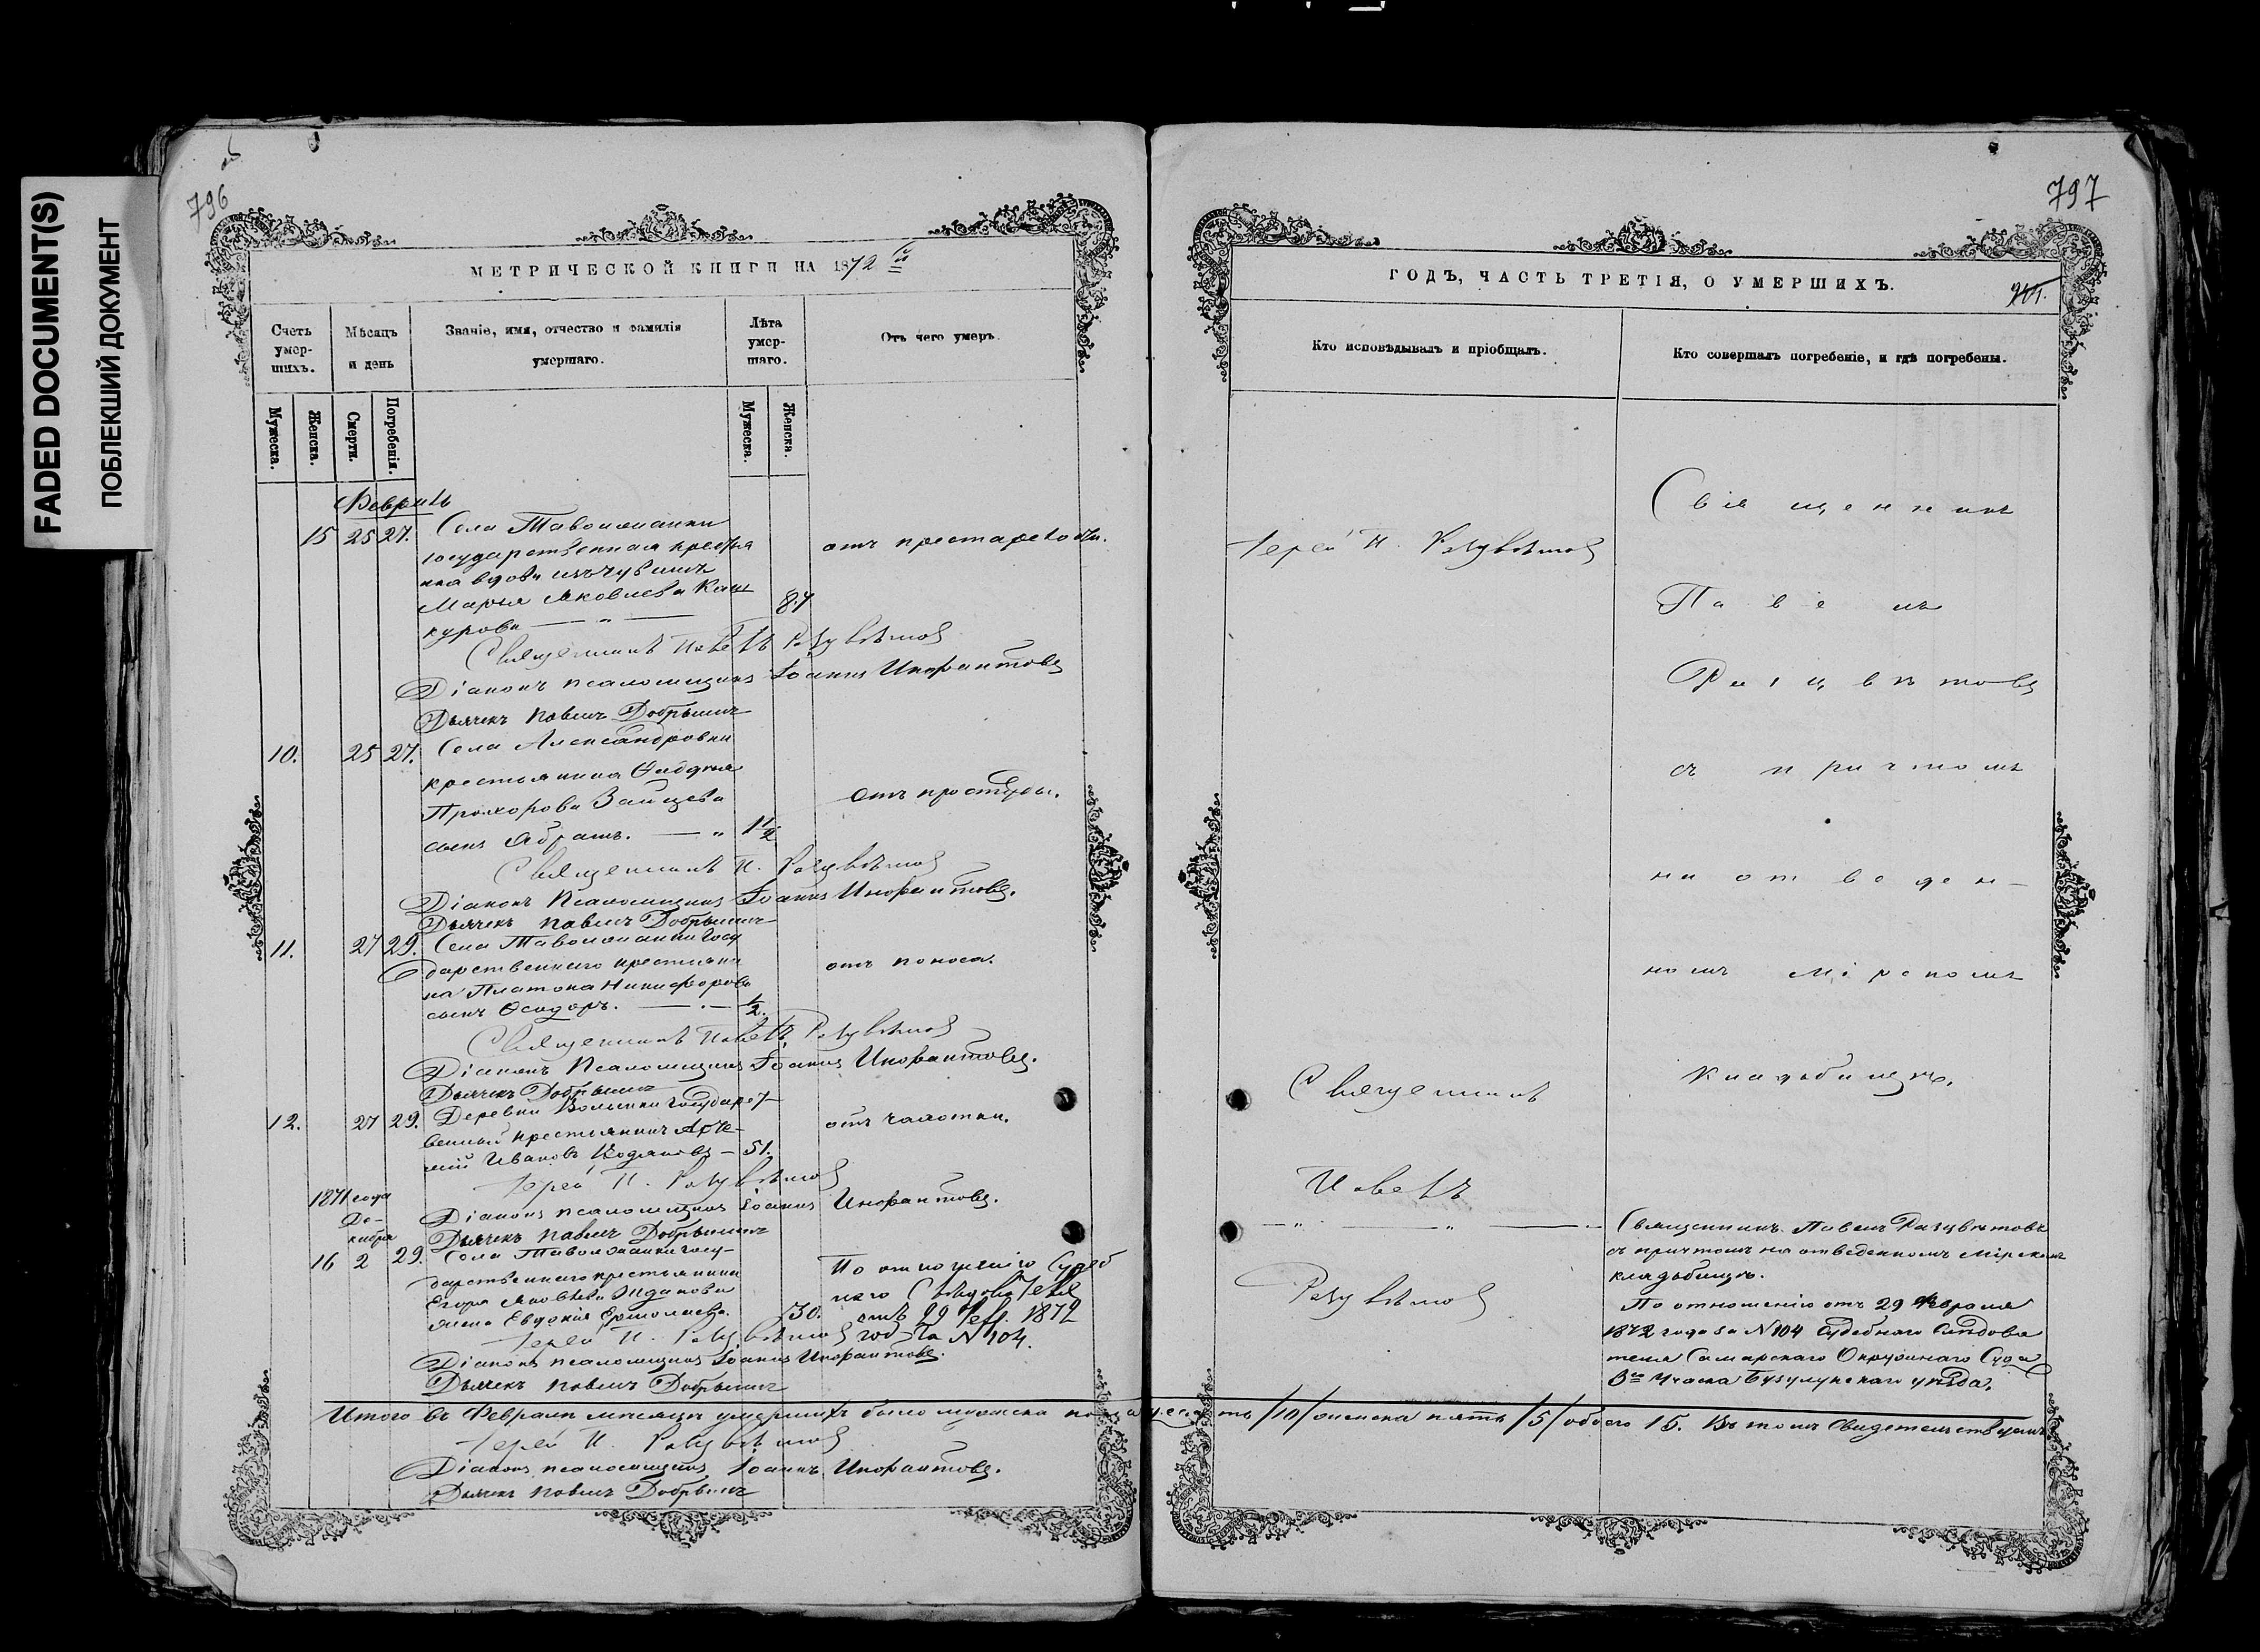 FADED DOCUMENT(S)
ПОБЛЕКШИЙ ДОКУМЕНТ
796
об
МЕТРИЧЕСКОЙ КНИГИ НА 1872 й
Счетъ умер-
шихъ.
Мѣсяцъ
и день
Званіе, имя, отчество и фамилія
умершаго.
Лѣта
умер-
шаго.
Отъ чего умеръ.
Мужеска.
Женска.
Смерти.
Погребенія.
Мужеска.
Женска.
Февраль
15 25 27. Села Таволжанки
государственная крестья
нка вдова изъ чувашъ
Марья Яковлева Каш
курова — „ — 87 отъ престарелости.
Священникъ Павелъ Разцвѣтовъ
Діаконъ псаломщикъ Іоаннъ Инфантовъ
Дьячекъ Павелъ Добрынинъ
10. 25 27. Села Александровки
крестьянина
Прохорова Зайцева
сынъ Абрамъ. — „ 1 1/2 отъ простуды.
Священникъ П. Разцвѣтовъ
Діаконъ Псаломщикъ Іоаннъ Инфантовъ.
Дьячекъ Павелъ Добрынинъ
11. 27 29. Села Таволжанки госу
дарственнаго крестьяни
на Платона Никифорова
сынъ Ѳеодоръ. — . — 1/2. отъ поноса.
Священникъ Павелъ Разцвѣтовъ
Діаконъ Псаломщикъ Іоаннъ Инфантовъ.
Дьячекъ Добрынинъ
12. 27 29. Деревни государст
венный крестьянинъ Арте-
мій Ивановъ Водяковъ — 51. отъ чахотки.
Іерей П. Разцвѣтовъ
Діаконъ псаломщикъ Іоаннъ Инфантовъ.
Дьячекъ Павелъ Добрынинъ
1871 года
Де-
кабря
16 2 29. Села Таволжанки госу-
дарственнаго крестьянина
Егора Яковлева Жданова
жена Евдокія Ермолаева. 30.
По отношенію Судеб
наго Слѣдователя
отъ 29 Фев. 1872
года № 104.
Іерей П. Разцвѣтовъ
Діаконъ псаломщикъ Іоаннъ Инфантовъ.
Дьячекъ Павелъ Добрынинъ
Итого въ Февралѣ мѣсяцѣ умершихъ было мужеска пола десять /10/ женска пять /5/ обоего 15. Въ томъ свидетельствуемъ
Іерей П. Разцвѣтовъ
Діаконъ псаломщикъ Іоаннъ Инфантовъ.
Дьячекъ Павелъ Добрынинъ
797
ГОДЪ, ЧАСТЬ ТРЕТІЯ, О УМЕРШИХЪ.
Кто исповѣдывалъ и пріобщалъ.
Кто совершалъ погребеніе, и гдѣ погребены.
Іерей П. Разцвѣтовъ
Священникъ
Павелъ
Разцвѣтовъ
съ причтомъ
на отведен-
номъ мірскомъ
кладбищѣ.
Священникъ
Павелъ
— „ — „ —
Разцвѣтовъ
Священникъ Павелъ Разцвѣтовъ
съ причтомъ на отведенномъ мірскомъ
кладбищѣ.
По отношенію отъ 29 Февраля
1872 года за № 104 Судебнаго Слѣдова
теля Самарскаго Окружнаго Суда
3го Участка Бузулукскаго уѣзда.